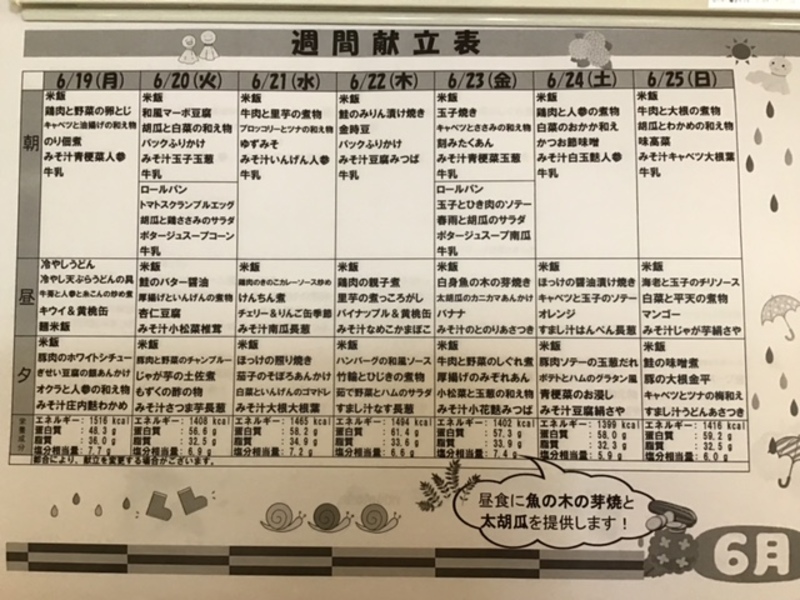 週間献立表
6/19(月) 6/20(火) 6/21(水) 6/22(木) 6/23(金) 6/24(土) 6/25(日)
朝
米飯
鶏肉と野菜の卵とじ
キャベツと油揚げの和え物
のり佃煮
みそ汁青梗菜人参
牛乳
米飯
和風マーボ豆腐
胡瓜と白菜の和え物
パックふりかけ
みそ汁玉子玉葱
牛乳
ロールパン
トマトスクランブルエッグ
胡瓜と鶏ささみのサラダ
ポタージュスープコーン
牛乳
米飯
牛肉と里芋の煮物
ブロッコリーとツナの和え物
ゆずみそ
みそ汁いんげん人参
牛乳
米飯
鮭のみりん漬け焼き
金時豆
パックふりかけ
みそ汁豆腐みつば
牛乳
米飯
玉子焼き
キャベツとささみの和え物
刻みたくあん
みそ汁青梗菜玉葱
牛乳
ロールパン
玉子とひき肉のソテー
春雨と胡瓜のサラダ
ポタージュスープ南瓜
牛乳
米飯
鶏肉と人参の煮物
白菜のおかか和え
かつお節味噌
みそ汁白玉麩人参
牛乳
米飯
牛肉と大根の煮物
胡瓜とわかめの和え物
味高菜
みそ汁キャベツ大根葉
牛乳
昼
冷やしうどん
冷やし天ぷらうどんの具
牛蒡と人参と糸こんの炒め煮
キウイ＆黄桃缶
麺米飯
米飯
鮭のバター醤油
厚揚げといんげんの煮物
杏仁豆腐
みそ汁小松菜椎茸
米飯
鶏肉のきのこカレーソース炒め
けんちん煮
チェリー＆りんご缶季節
みそ汁南瓜長葱
米飯
鶏肉の親子煮
里芋の煮っころがし
パイナップル＆黄桃缶
みそ汁なめこかまぼこ
米飯
白身魚の木の芽焼き
太胡瓜のカニカマあんかけ
バナナ
みそ汁のとのりあさつき
米飯
ほっけの醤油漬け焼き
キャベツと玉子のソテー
オレンジ
すまし汁はんぺん長葱
米飯
海老と玉子のチリソース
白菜と平天の煮物
マンゴー
みそ汁じゃが芋絹さや
夕
米飯
豚肉のホワイトシチュー
ぎせい豆腐の銀あんかけ
オクラと人参の和え物
みそ汁庄内麩わかめ
米飯
豚肉と野菜のチャンプルー
じゃが芋の土佐煮
もずくの酢の物
みそ汁さつま芋長葱
米飯
ほっけの照り焼き
茄子のそぼろあんかけ
白菜といんげんのゴマドレ
みそ汁大根大根葉
米飯
ハンバーグの和風ソース
竹輪とひじきの煮物
茹で野菜とハムのサラダ
すまし汁なす長葱
米飯
牛肉と野菜のしぐれ煮
厚揚げのみぞれあん
小松菜と玉葱の和え物
みそ汁小花麩みつば
米飯
豚肉ソテーの玉葱だれ
ポテトとハムのグラタン風
青梗菜のお浸し
みそ汁豆腐絹さや
米飯
鮭の味噌煮
豚の大根金平
キャベツとツナの梅和え
すまし汁うどんあさつき
栄養成分
エネルギー: 1516 kcal
蛋白質 : 48.3 g
脂質 : 36.0 g
塩分相当量: 7.7 g
エネルギー: 1408 kcal
蛋白質 : 56.6 g
脂質 : 32.5 g
塩分相当量: 6.9 g
エネルギー: 1465 kcal
蛋白質 : 58.2 g
脂質 : 34.9 g
塩分相当量: 7.2 g
エネルギー: 1494 kcal
蛋白質 : 61.4 g
脂質 : 33.6 g
塩分相当量: 6.6 g
エネルギー: 1402 kcal
蛋白質 : 57.3 g
脂質 : 33.9 g
塩分相当量: 7.4 g
エネルギー: 1399 kcal
蛋白質 : 58.0 g
脂質 : 32.3 g
塩分相当量: 5.9 g
エネルギー: 1416 kcal
蛋白質 : 59.2 g
脂質 : 32.5 g
塩分相当量: 6.0 g
都合により、献立を変更する場合がございます。
昼食に魚の木の芽焼と
太胡瓜を提供します！
6月